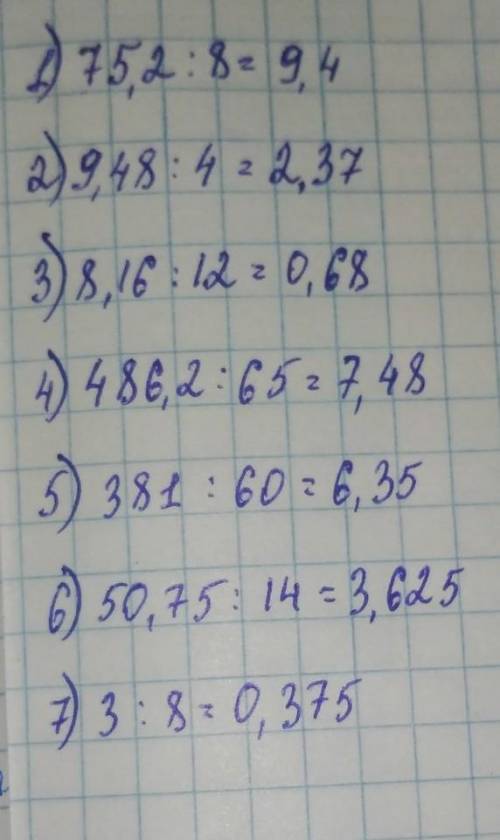 1) 75,2 : 8 = 9,4
2) 9,48 : 4 = 2,37
3) 8,16 : 12 = 0,68
4) 486,2 : 65 = 7,48
5) 381 : 60 = 6,35
6) 50,75 : 14 = 3,625
7) 3 : 8 = 0,375